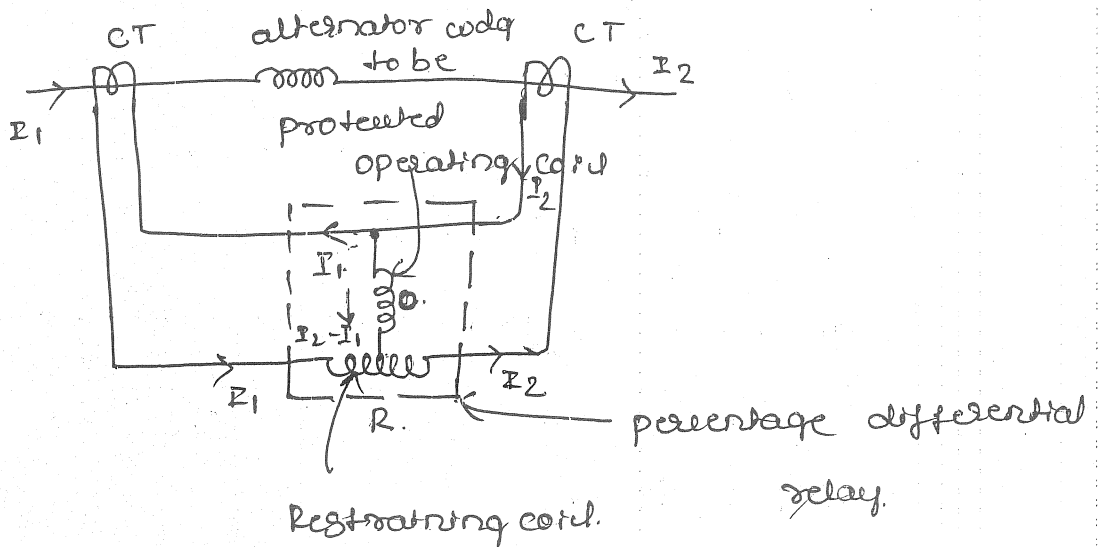 CT
alternator codq
CT
to be
I2
I1
protected
operating coil
I2
I1
O.
I2-I1
I1
I2
R.
percentage differential
relay.
Restraining coil.